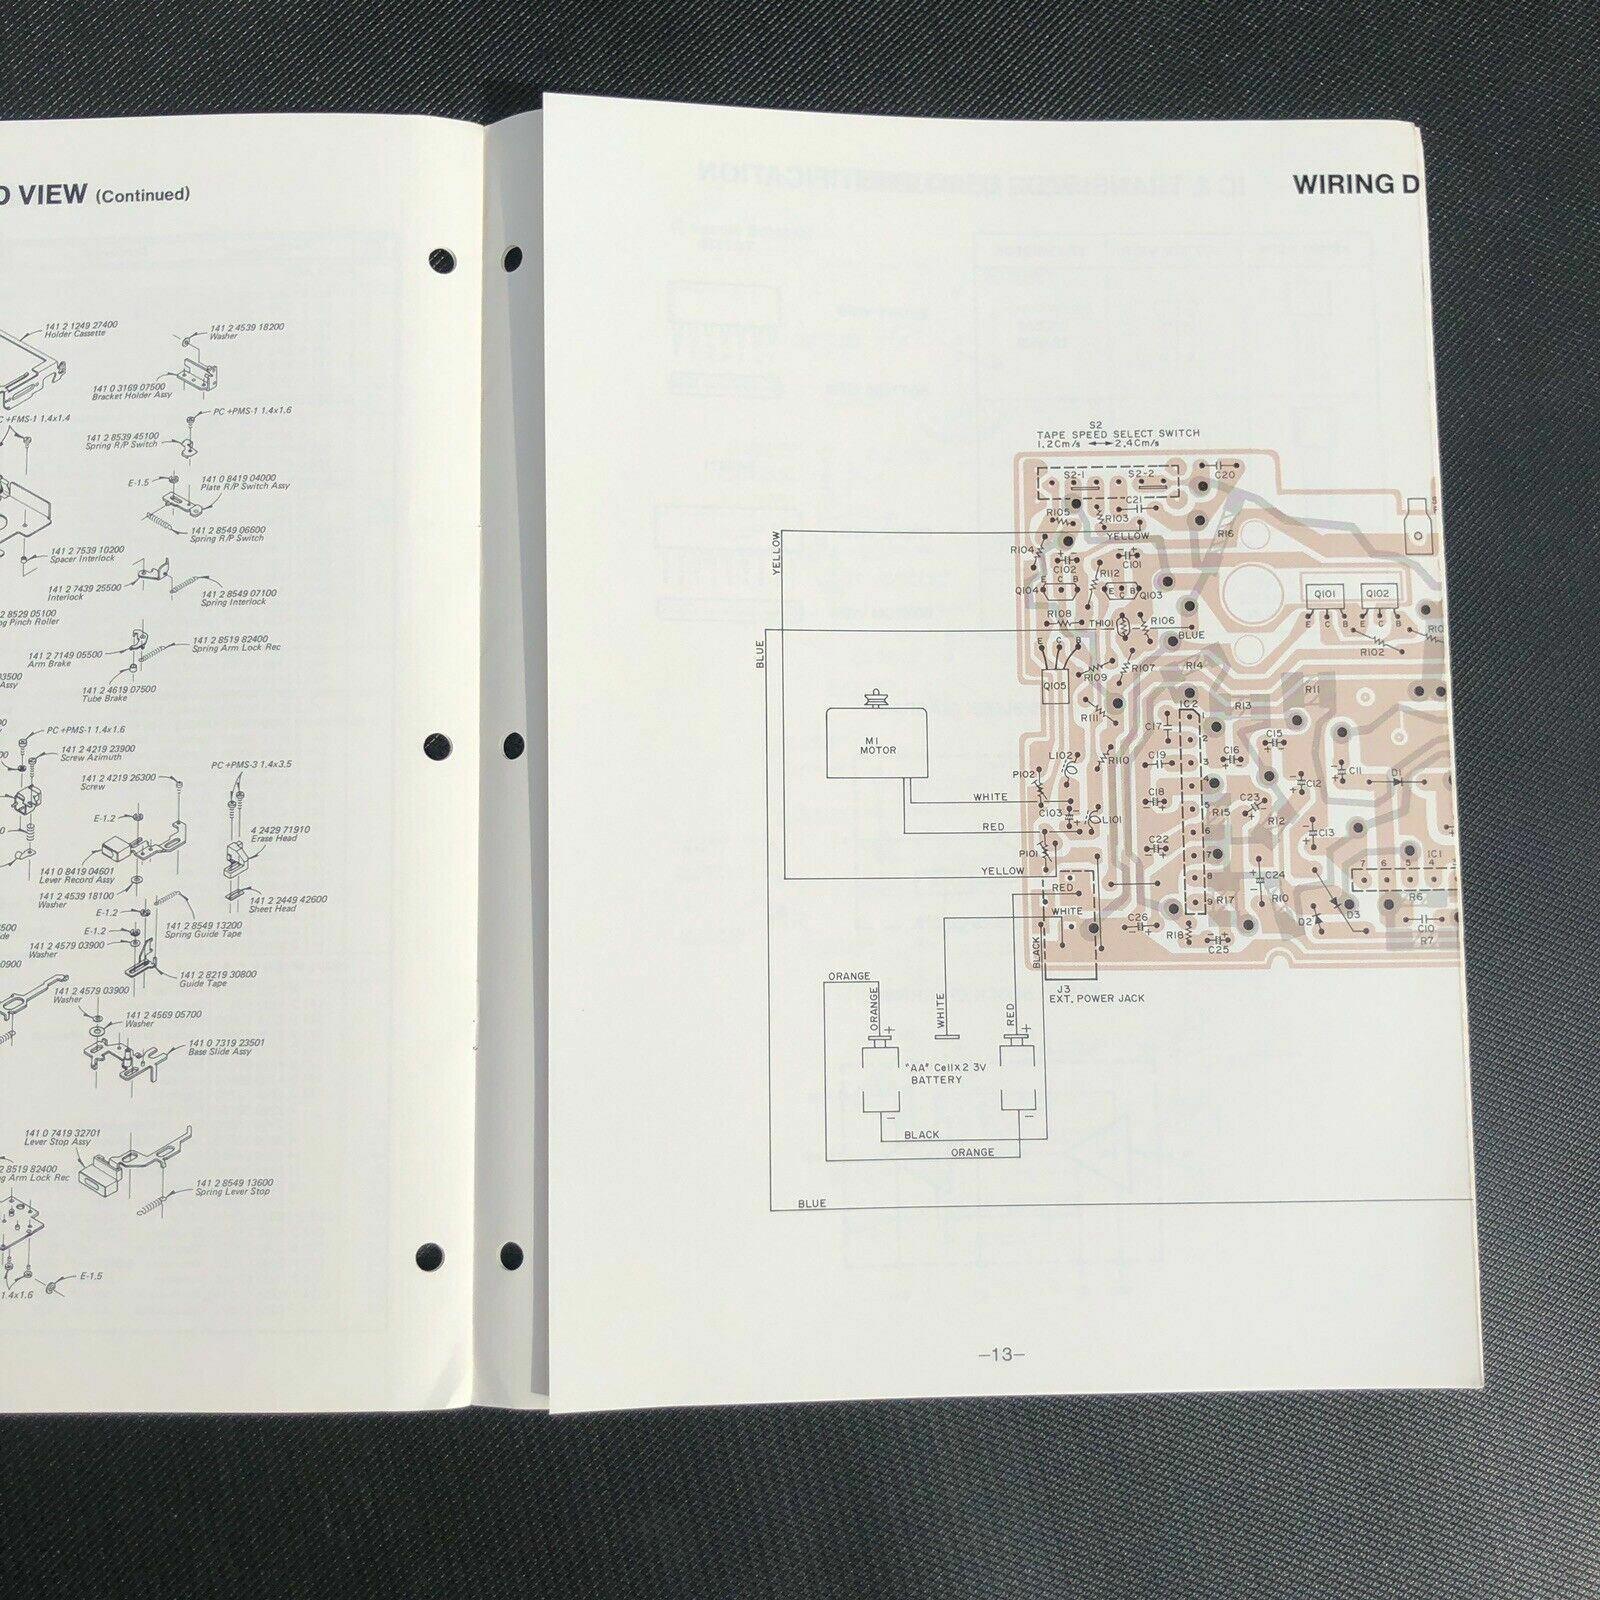 D VIEW (Continued)
141 2 1249 27400
Holder Cassette
141 2 4539 18200
Washer
141 0 3169 07500
Bracket Holder Assy
PC +PMS-1 1.4x1.4
PC +PMS-1 1.4x1.6
141 2 8539 45100
Spring R/P Switch
E-1.5
141 0 8419 04000
Plate R/P Switch Assy
141 2 8549 06600
Spring R/P Switch
141 2 7539 10200
Spacer Interlock
141 2 7439 25500
Interlock
141 2 8549 07100
Spring Interlock
2 8529 05100
g Pinch Roller
141 2 8519 82400
Spring Arm Lock Rec
141 2 7149 05500
Arm Brake
03500
Assy
141 2 4619 07500
Tube Brake
PC +PMS-1 1.4x1.6
141 2 4219 23900
Screw Azimuth
141 2 4219 26300
Screw
PC +PMS-3 1.4x3.5
E-1.2
4 2429 71910
Erase Head
141 0 8419 04601
Lever Record Assy
141 2 4539 18100
Washer
141 2 2449 42600
Sheet Head
E-1.2
141 2 8549 13200
Spring Guide Tape
E-1.2
141 2 4579 03900
Washer
141 2 8219 30800
Guide Tape
141 2 4579 03900
Washer
141 2 4569 05700
Washer
141 0 7319 23501
Base Slide Assy
141 0 7419 32701
Lever Stop Assy
2 8519 82400
g Arm Lock Rec
141 2 8549 13600
Spring Lever Stop
E-1.5
1.4x1.6
WIRING D
S2
TAPE SPEED SELECT SWITCH
1.2Cm/s ↔ 2.4Cm/s
S2-1 S2-2 C20
C21
R105 R103 R16
YELLOW
YELLOW
R104
C102 C101
R112
Q104 E C B E C B Q103
Q101 Q102
E C B E C B
R108 TH101 R106
BLUE
BLUE
R102
E C B
R107 R14
R109
Q105
R111
R11
IC2 R13
C17
2
M1
MOTOR
L102 R110
C19 3
C16 C15
P102
4
C11 D1
C12
WHITE
C18 5
C103 L101
C23
R15 R12
RED
6
C13
P101
C22 7
YELLOW
8
C24
IC1
7 6 5 4
RED
WHITE
9 R17 R10
R6
D2 D3
C26
R18 C25
C10
R7
BLACK
J3
EXT. POWER JACK
ORANGE
ORANGE
WHITE
RED
+ +
"AA" Cell×2 3V
BATTERY
− −
BLACK
ORANGE
BLUE
–13–